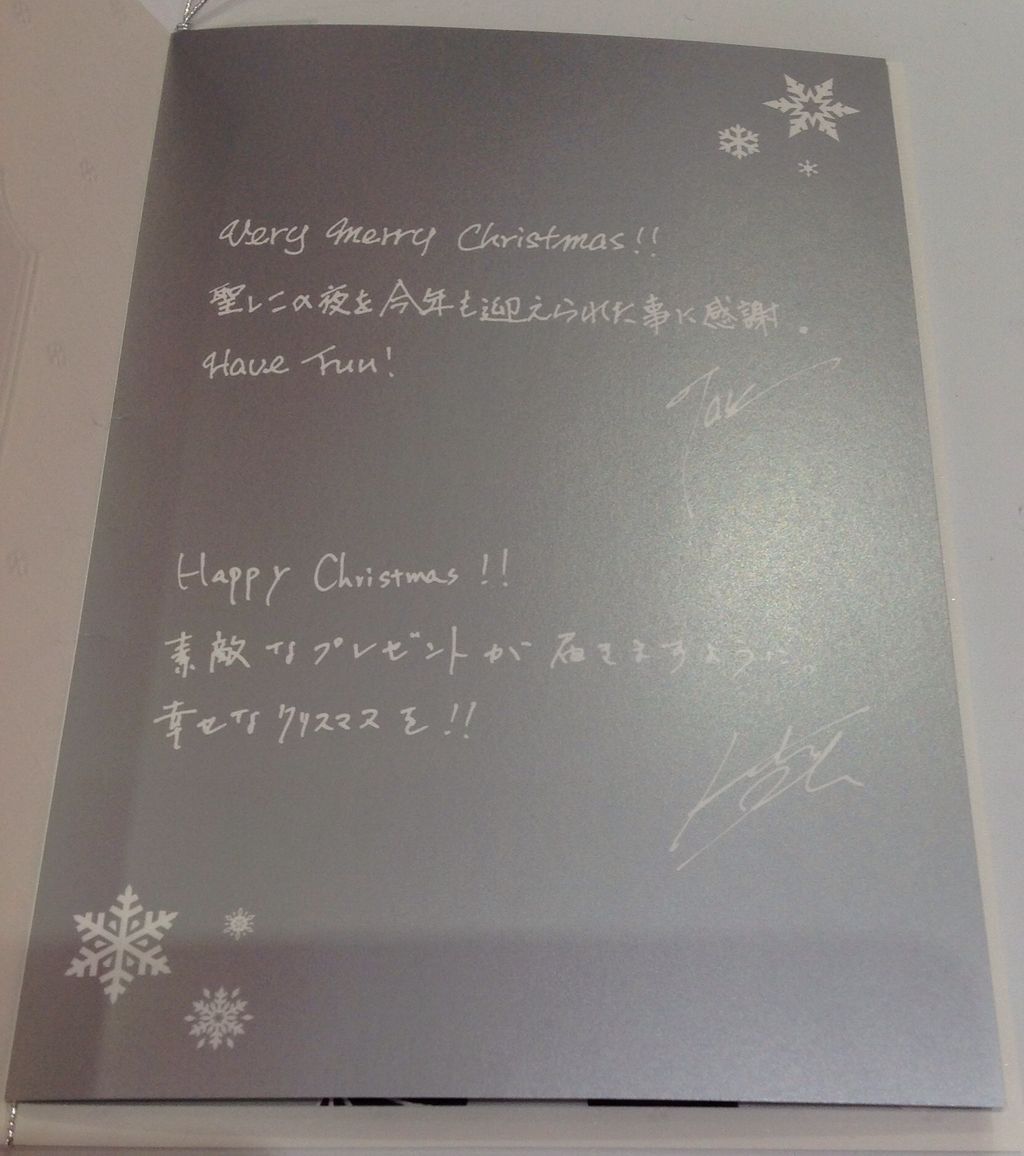 Very Merry Christmas!!
聖しこの夜を今年も迎えられた事に感謝。
Have Fun!
Happy Christmas!!
素敵なプレゼントが届きますように。
幸せなクリスマスを!!